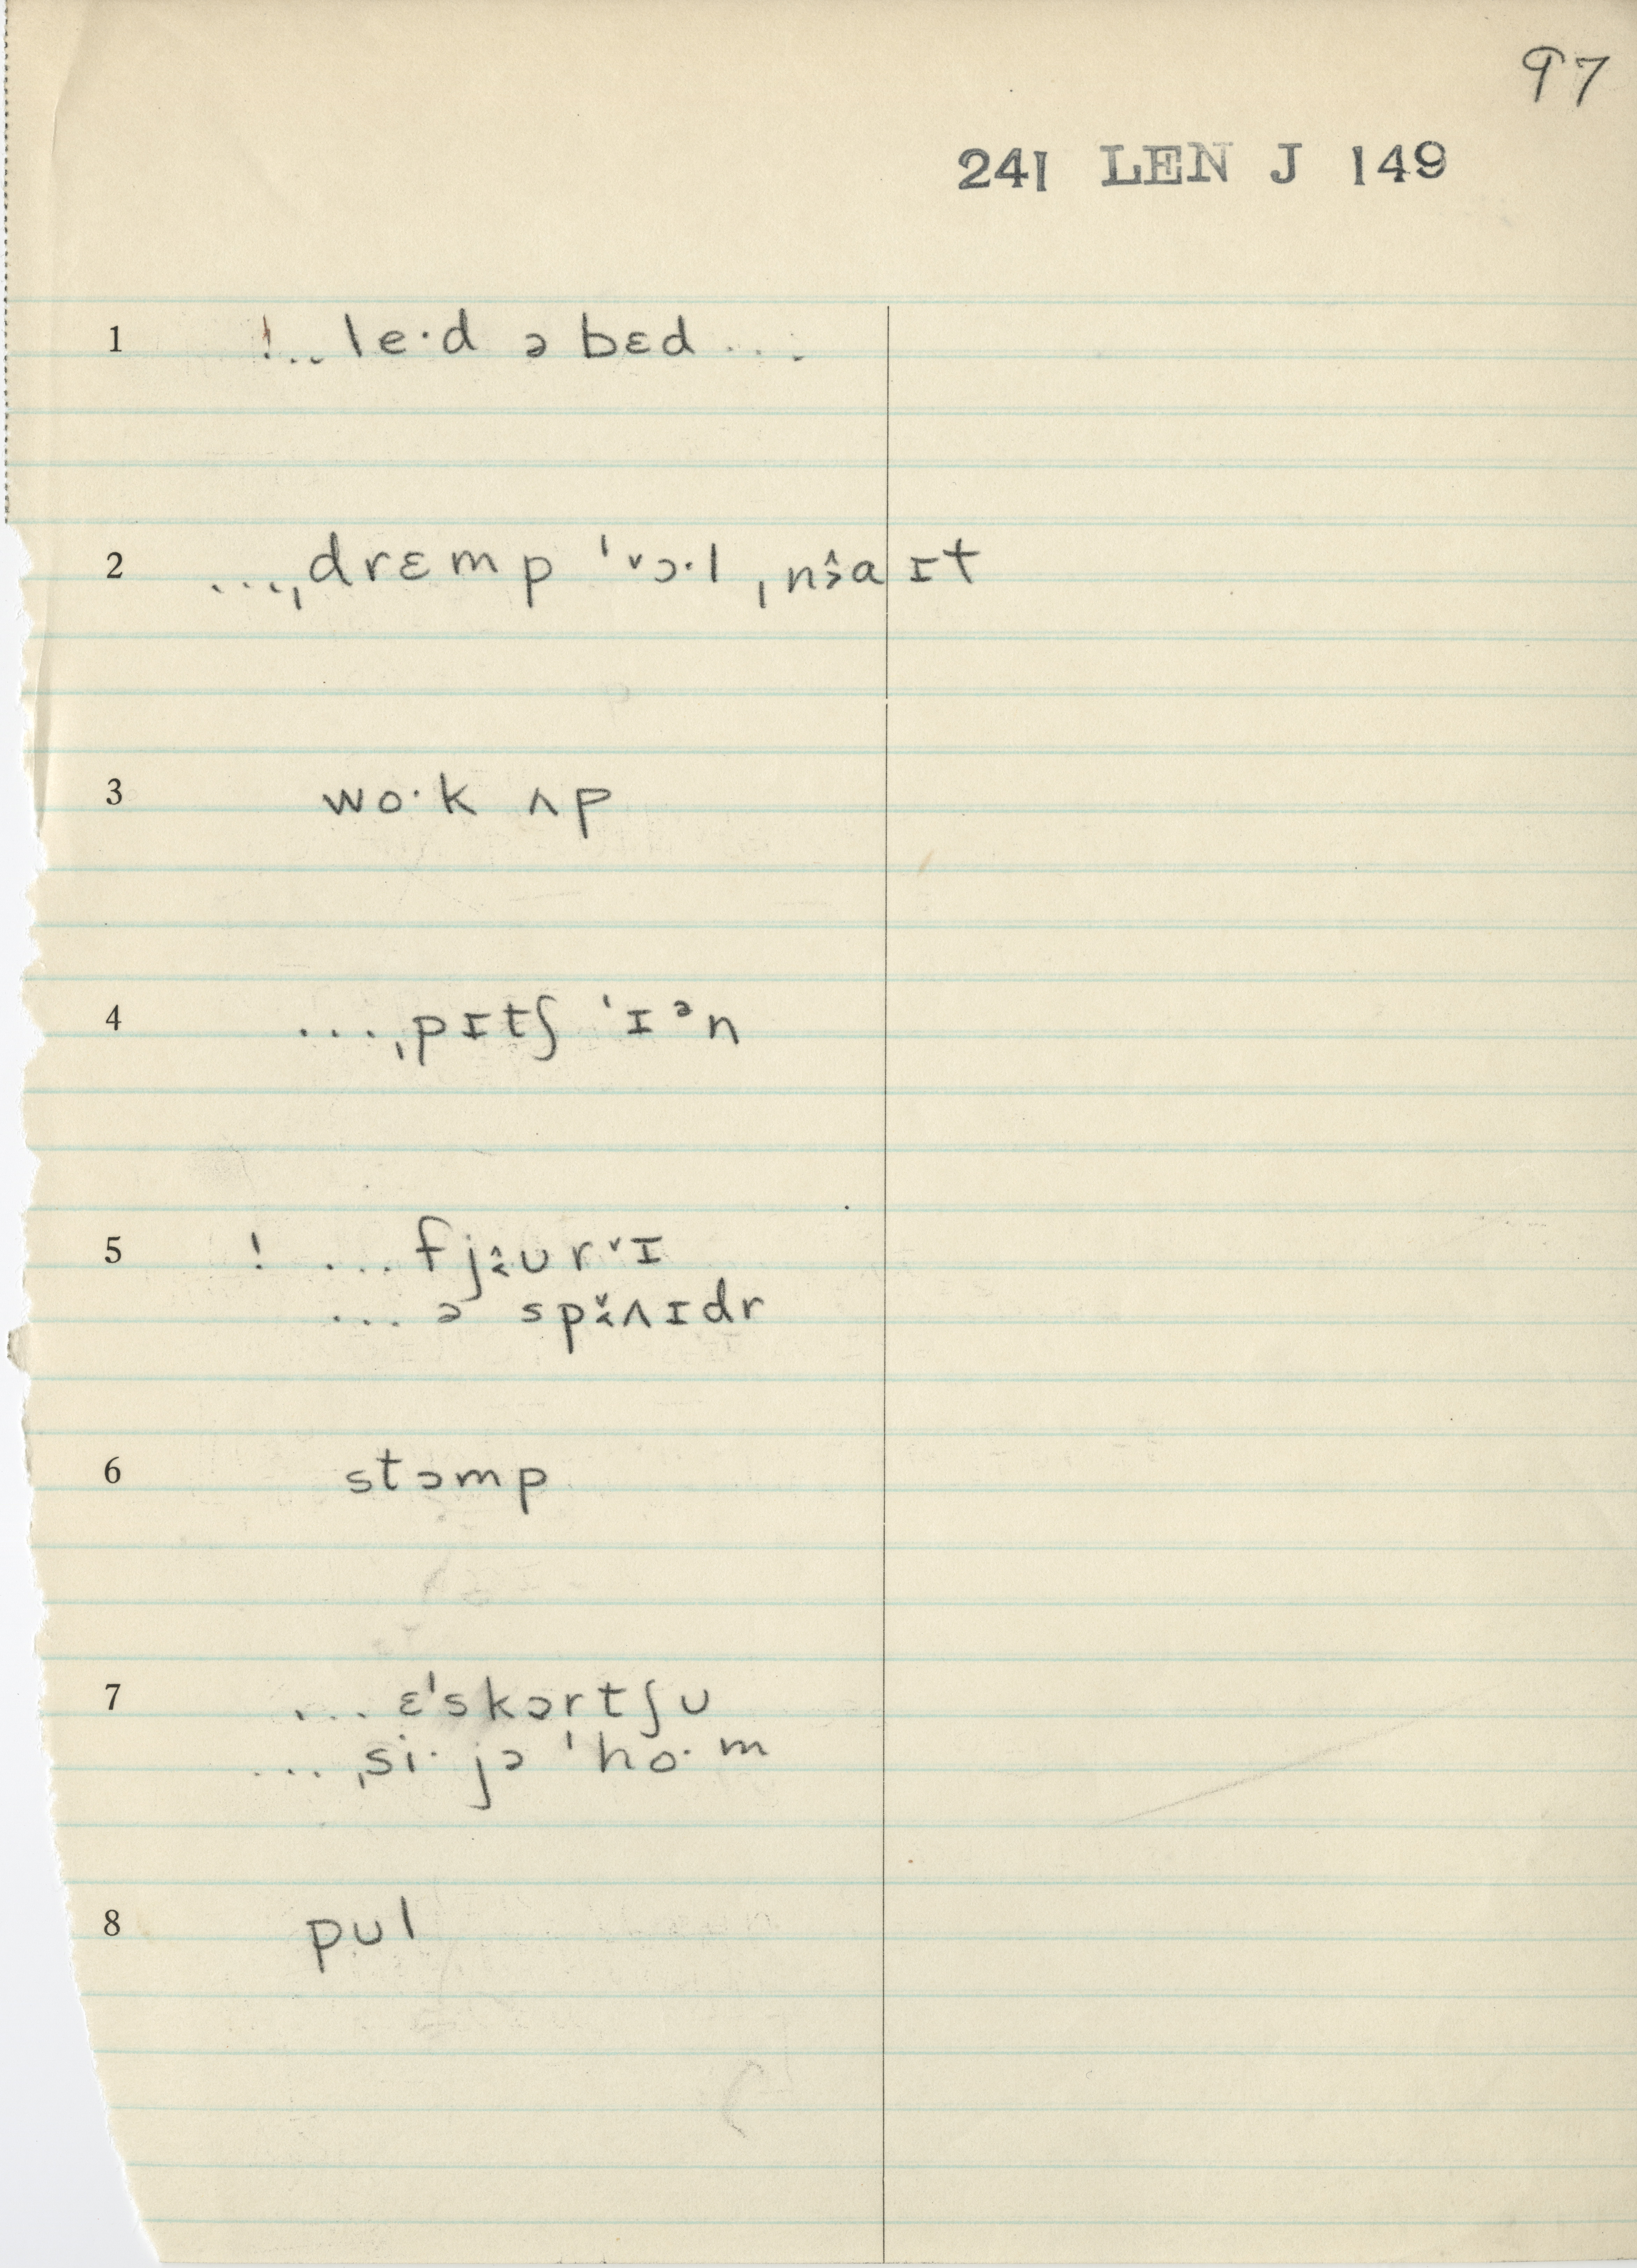 97
241 LEN J 149
1 !... le·d ə bɛd ...
2 ...ˌdrɛmp ˈˇɔ·l ˌnɜ̭̂aɪt
3 wo·k ʌp
4 ...ˌpɪtʃ ˈɪᵊn
5 ! ... fjɨ̂ʊrˇɪ
... ə spɐ̌ʌɪdr
6 stɔmp
7 ... ɛˈskɔrtʃʊ
... ˌsi· jə ˈho·m
8 pʊl